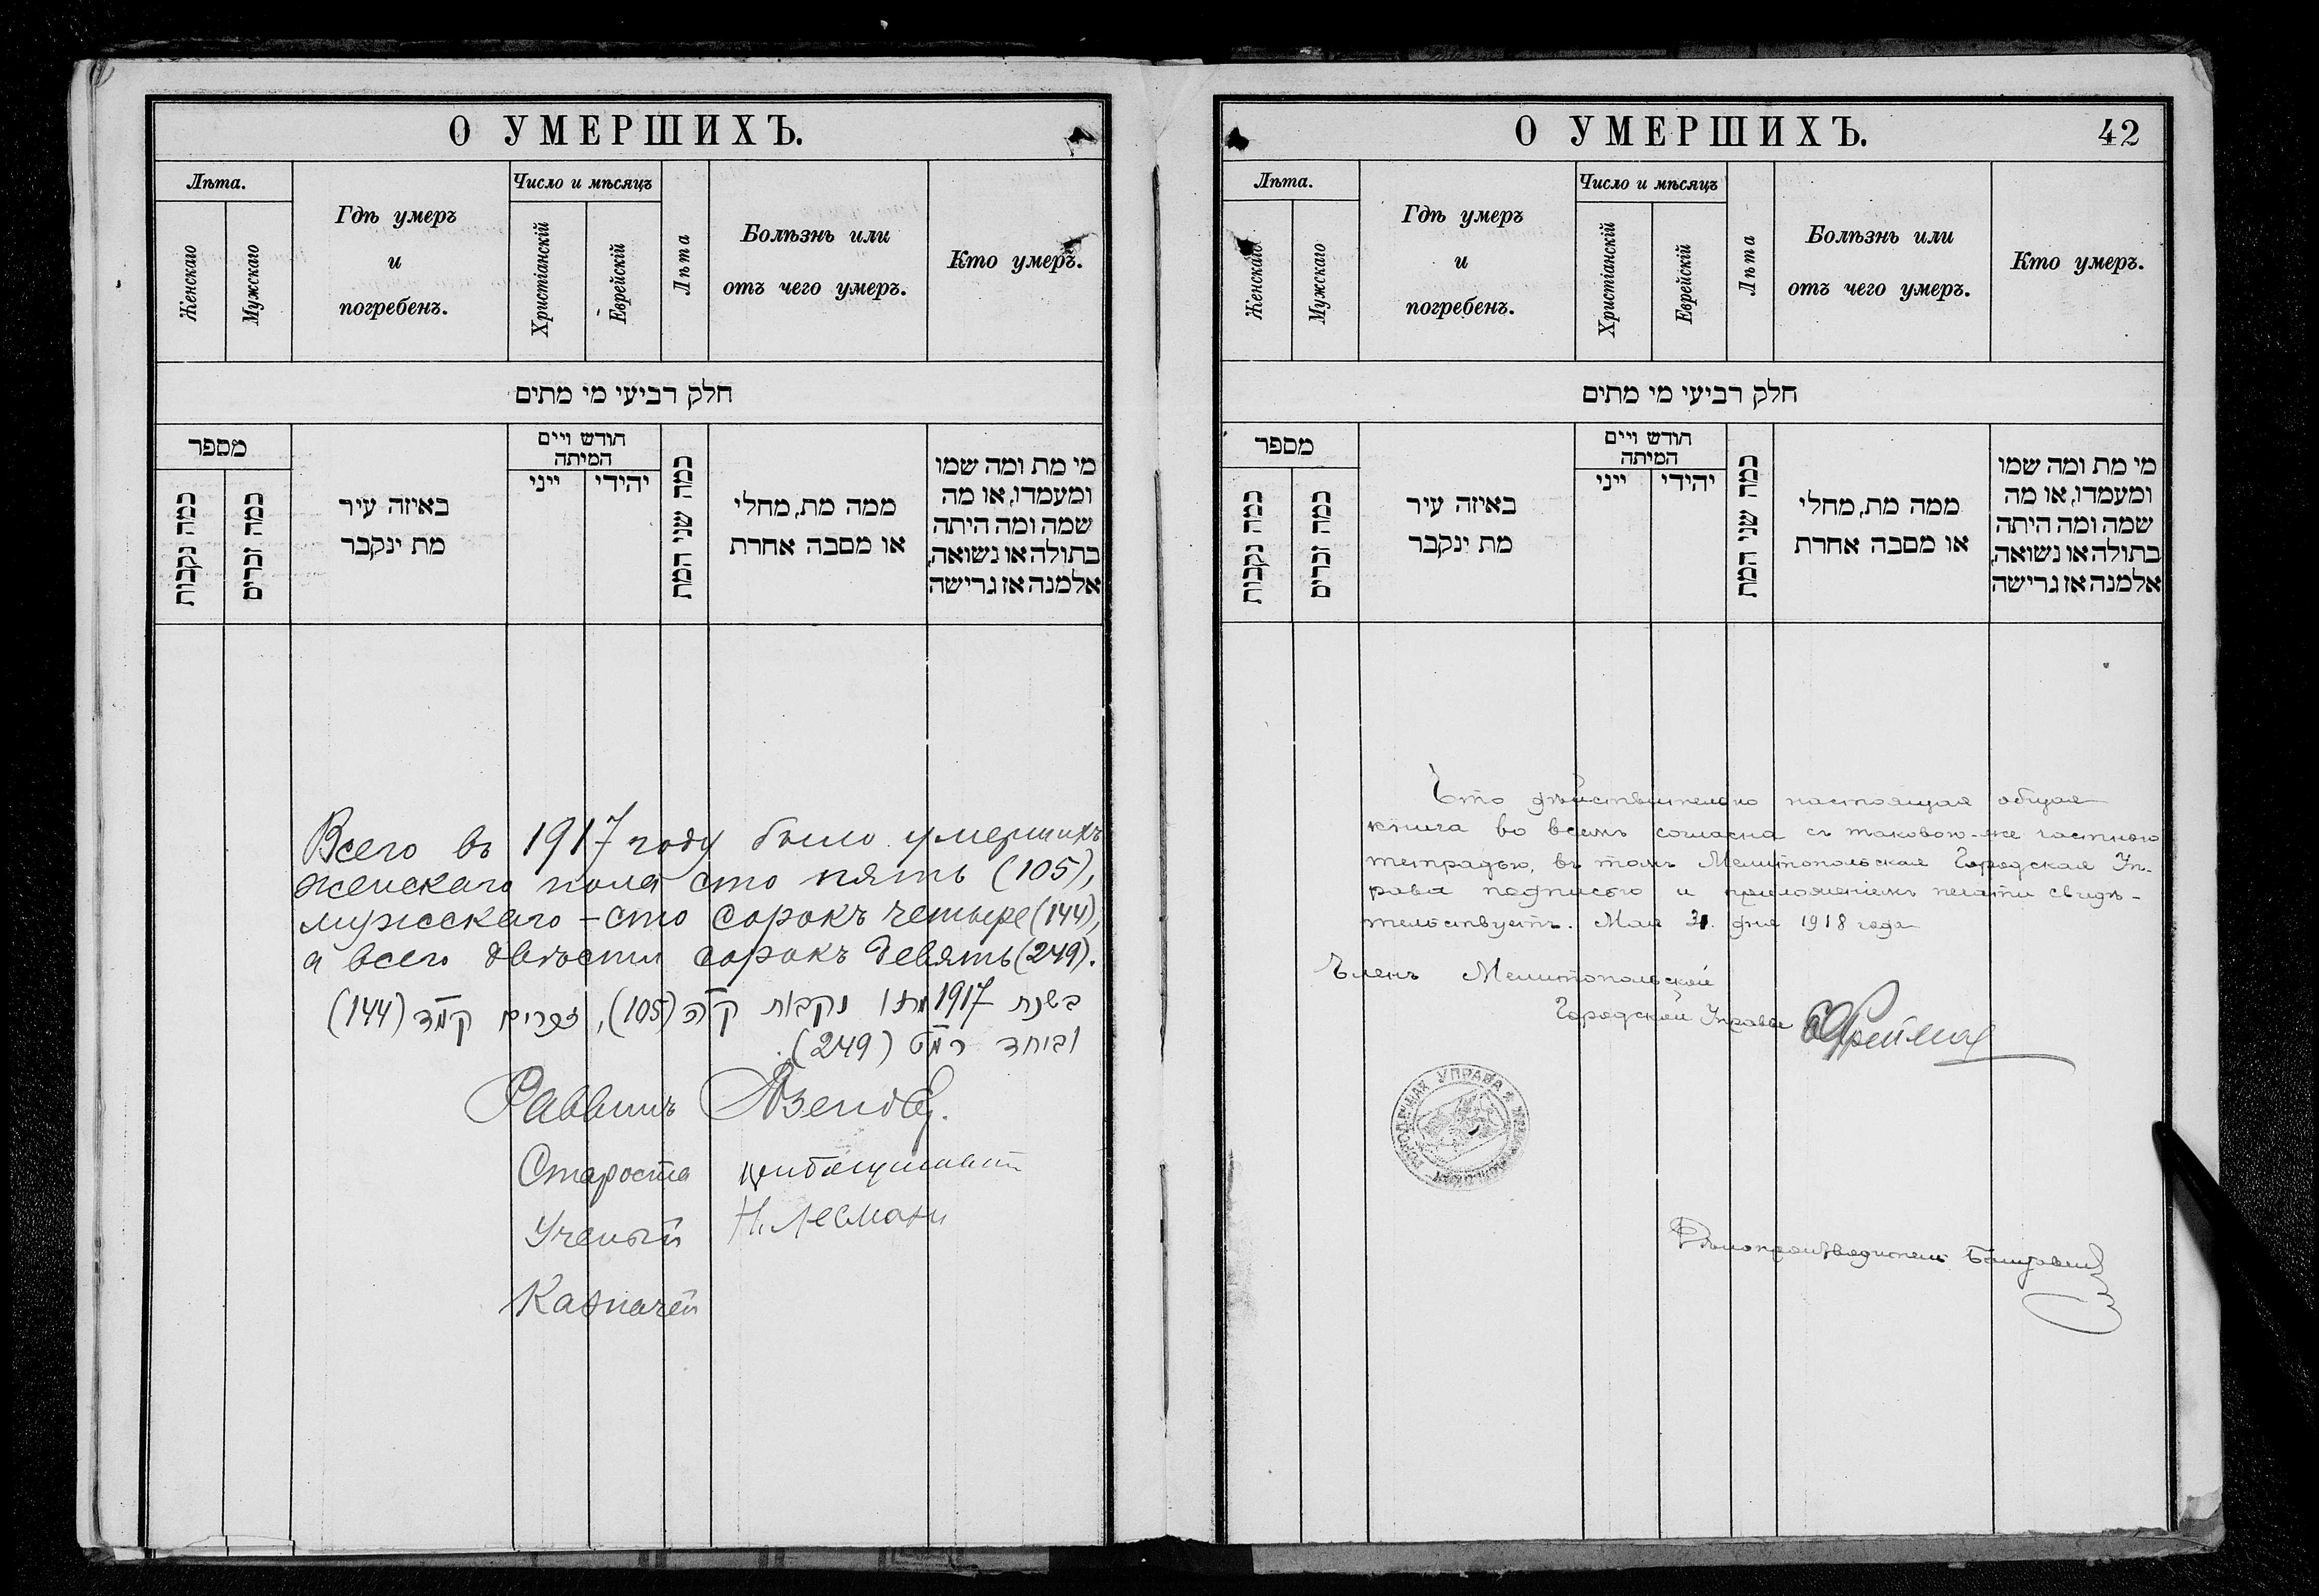 О УМЕРШИХЪ.
Лѣта.
Женскаго
Мужскаго
Гдѣ умеръ
и
погребенъ.
Число и мѣсяцъ
Христіанскій
Еврейскій
Лѣта
Болѣзнь или
отъ чего умеръ.
Кто умеръ.
חלק רביעי מי מתים
מספר
כמה נקבות
כמה זכרים
באיזה עיר
מת ינקבר
חודש ויים
המיתה
ייני
יהידי
כמה שני המת
ממה מת, מחלי
או מסבה אחרת
מי מת ומה שמו
ומעמדו, או מה
שמה ומה היתה
בתולה או נשואה,
אלמנה אז גרישה
Всего въ 1917 году было умершихъ
женскаго пола сто пять (105),
мужскаго – сто сорокъ четыре (144),
а всего двѣсти сорокъ девять (249).
בשנת 1917 מתו נקבות ק״ה (105), זכרים קמ״ד (144)
וביחד רמ״ט (249).
Раввинъ
Староста
Ученый Н. Лесманъ
Казначей
О УМЕРШИХЪ.
42
Лѣта.
Женскаго
Мужскаго
Гдѣ умеръ
и
погребенъ.
Число и мѣсяцъ
Христіанскій
Еврейскій
Лѣта
Болѣзнь или
отъ чего умеръ.
Кто умеръ.
חלק רביעי מי מתים
מספר
כמה נקבות
כמה זכרים
באיזה עיר
מת ינקבר
חודש ויים
המיתה
ייני
יהידי
כמה שני המת
ממה מת, מחלי
או מסבה אחרת
מי מת ומה שמו
ומעמדו, או מה
שמה ומה היתה
בתולה או נשואה,
אלמנה אז גרישה
Что дѣйствительно настоящая общая
книга во всемъ согласна съ таковою-же частною
тетрадью, въ томъ Мелитопольская Городская Уп-
рава подписью и приложеніемъ печати свидѣ-
тельствуетъ. Мая 31 дня 1918 года
Членъ Мелитопольской
Городской Управы
ГОРОДСКАЯ УПРАВА
Дѣлопроизводитель